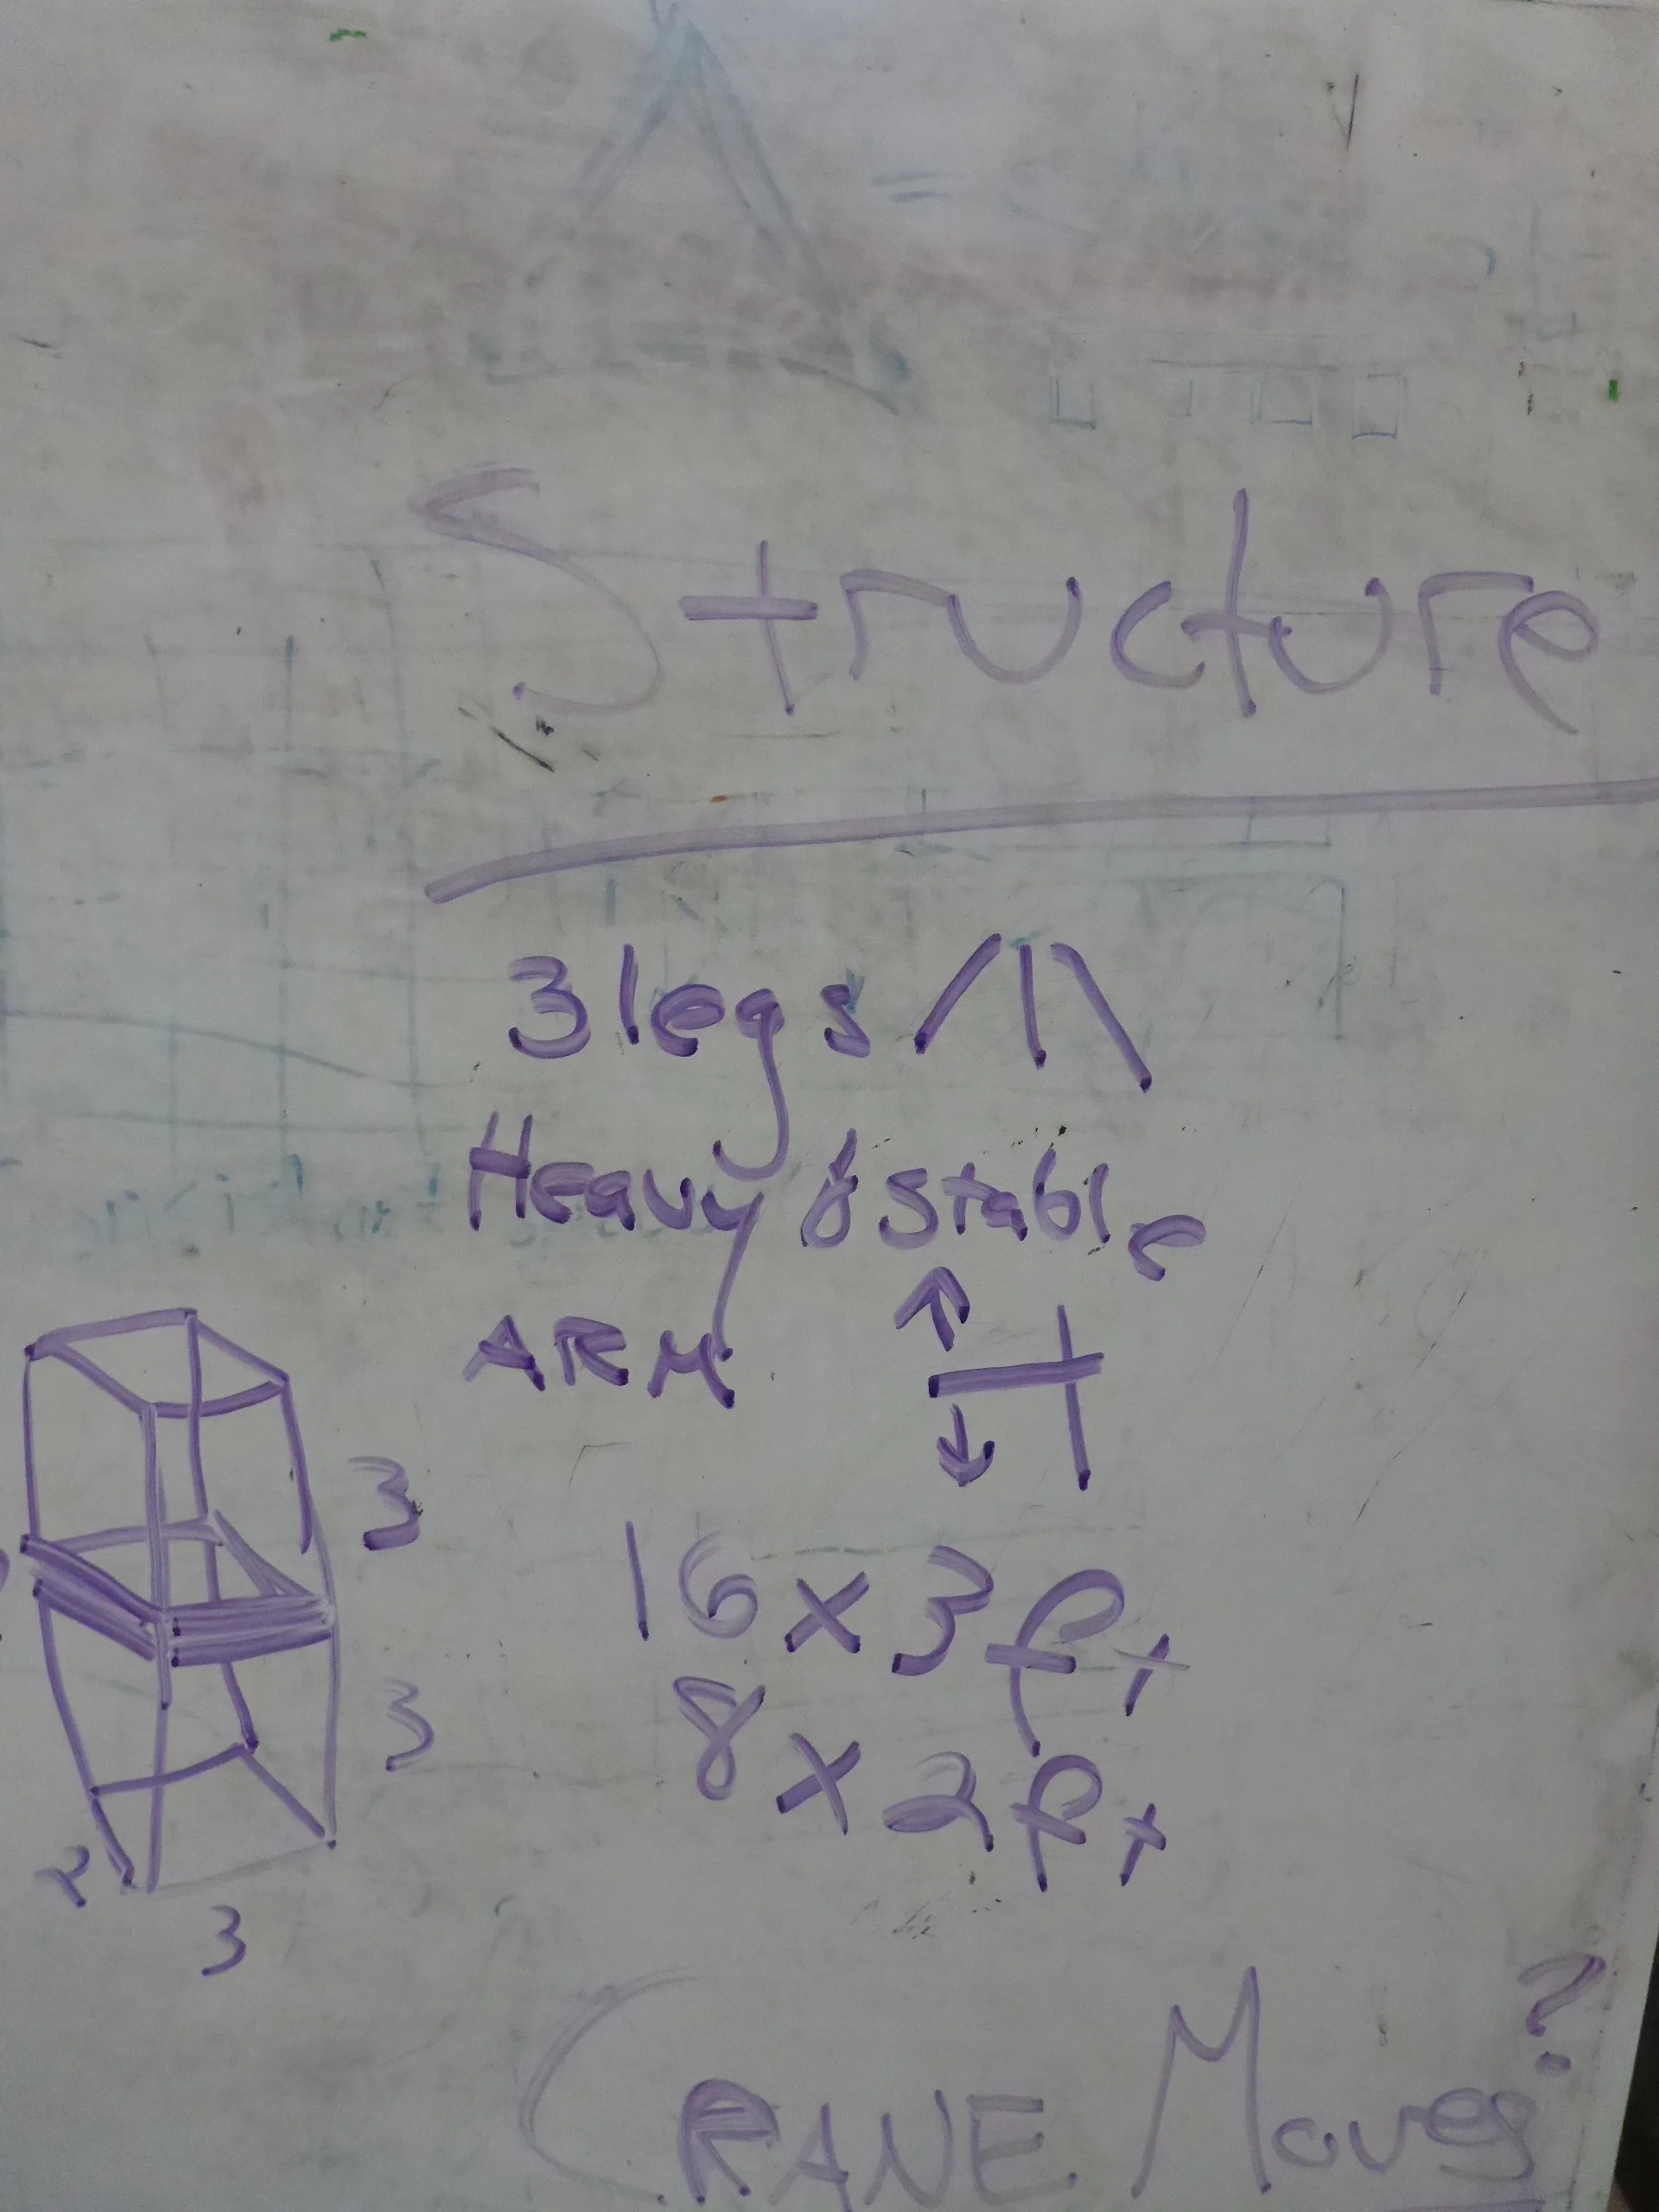 Structure
3 legs
Heavy & Stable
ARM
3
16 x 3 ft
3
8 x 2 ft
2
3
CRANE Moves?